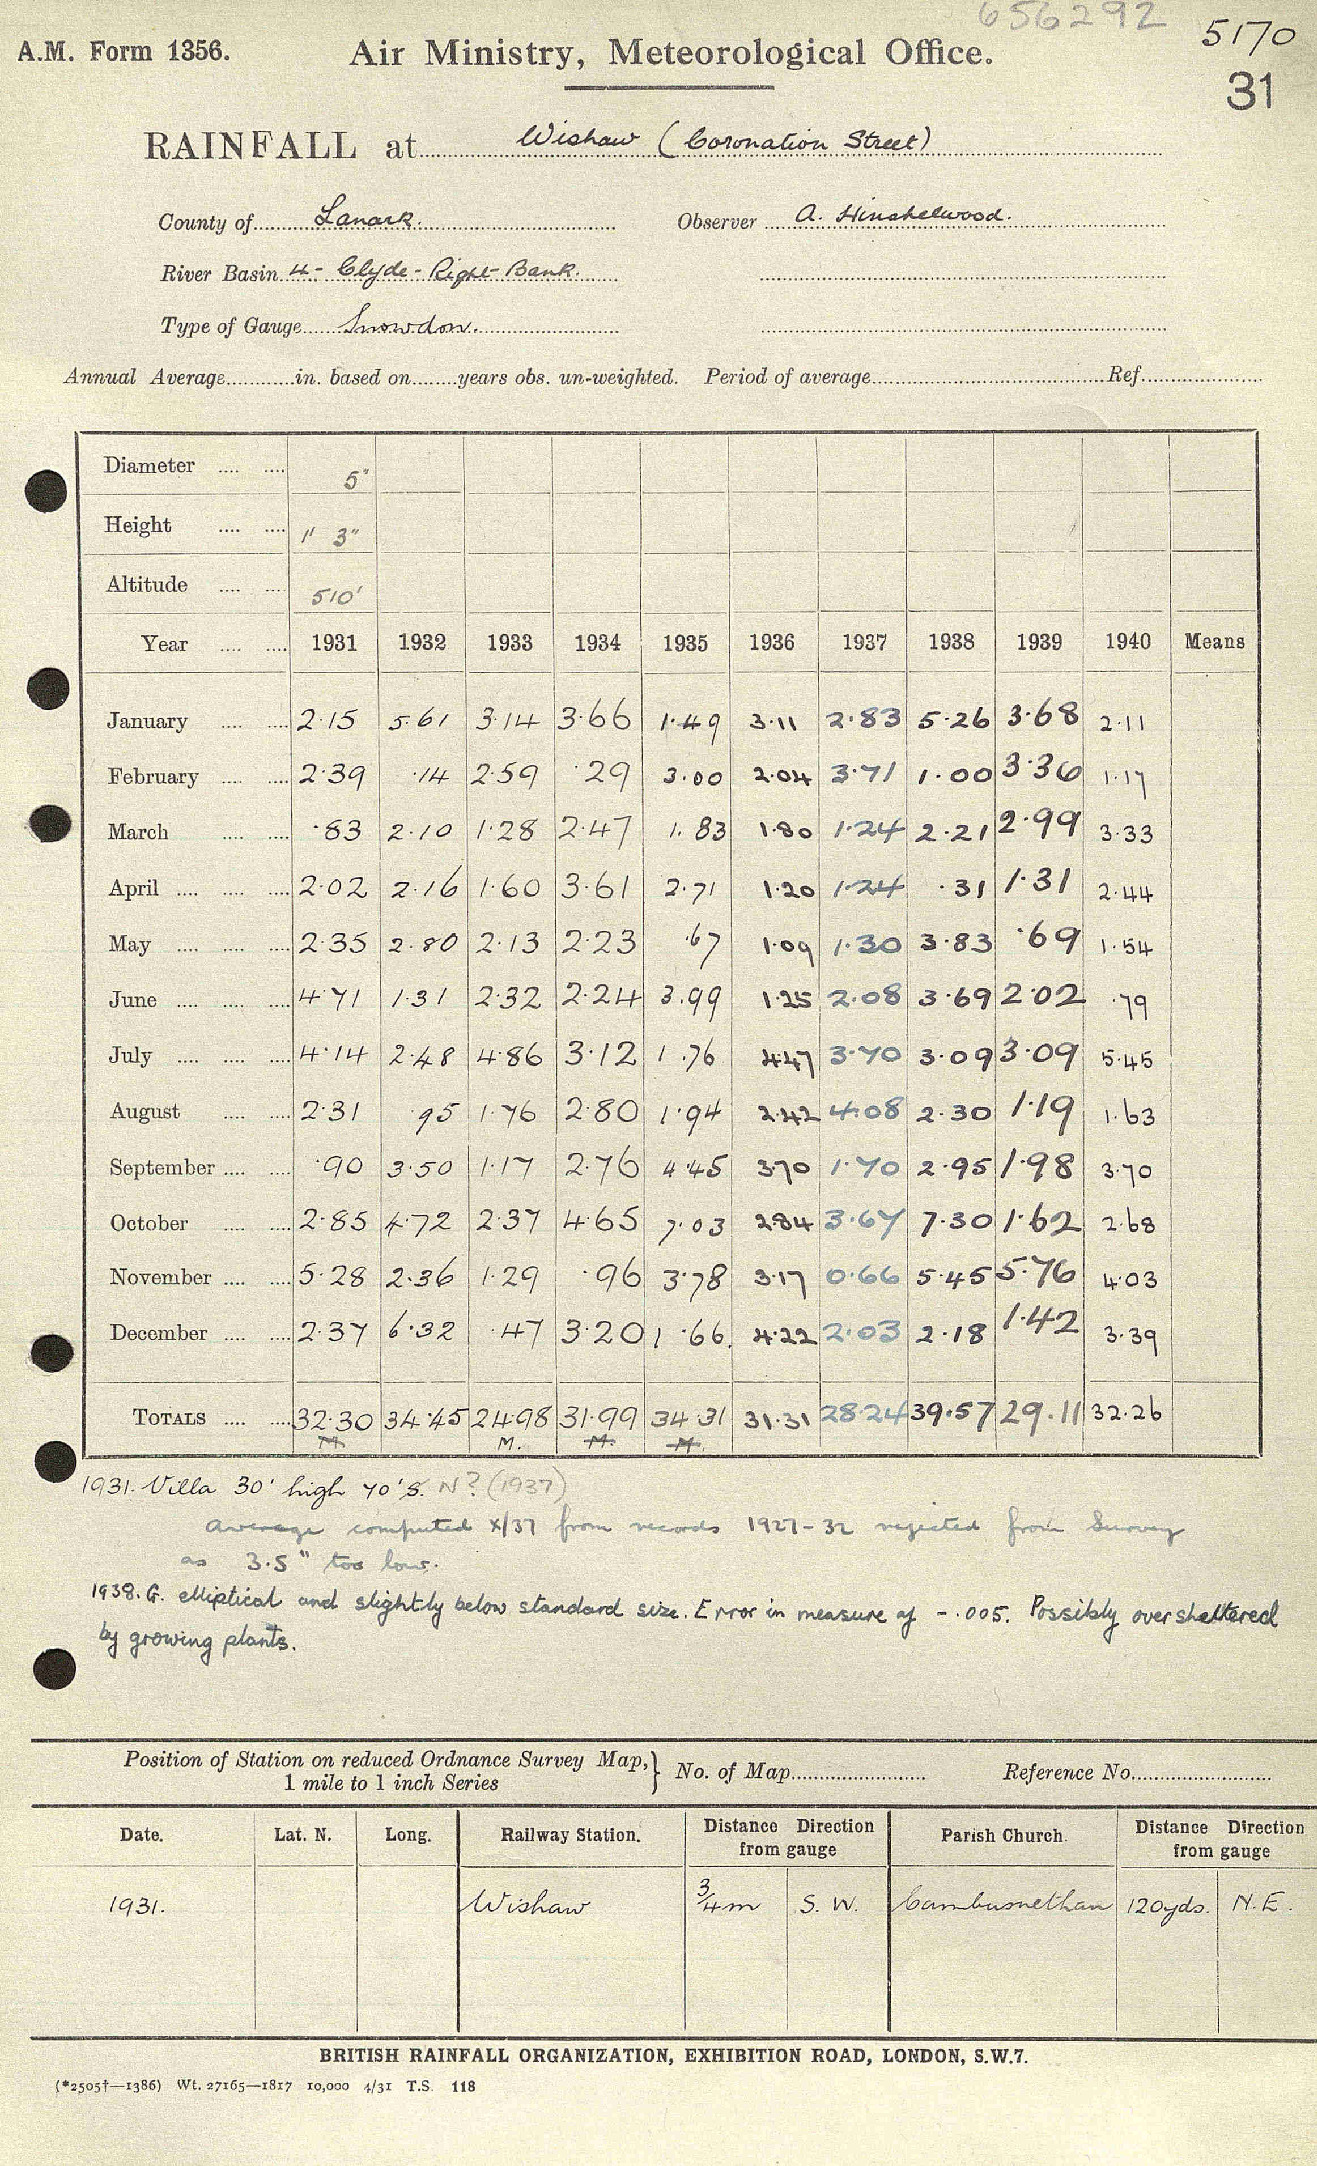 656292
5170
A.M. Form 1356. Air Ministry, Meteorological Office.
31
RAINFALL at Wishaw (Coronation Street)
County of Lanark. Observer A. Hinshelwood.
River Basin 4 - Clyde - Right - Bank.
Type of Gauge Snowdon.
Annual Average in. based on years obs. un-weighted. Period of average Ref.
Diameter 5"
Height 1' 3"
Altitude 510'
Year 1931 1932 1933 1934 1935 1936 1937 1938 1939 1940 Means
January 2.15 5.61 3.14 3.66 1.49 3.11 2.83 5.26 3.68 2.11
February 2.39 .14 2.59 .29 3.00 2.04 3.71 1.00 3.36 1.17
March .83 2.10 1.28 2.47 1.83 1.80 1.24 2.21 2.99 3.33
April 2.02 2.16 1.60 3.61 2.71 1.20 1.24 .31 1.31 2.44
May 2.35 2.80 2.13 2.23 .67 1.09 1.30 3.83 .69 1.54
June 4.71 1.31 2.32 2.24 3.99 1.25 2.08 3.69 2.02 .79
July 4.14 2.48 4.86 3.12 1.76 4.47 3.70 3.09 3.09 5.45
August 2.31 .95 1.76 2.80 1.94 2.42 4.08 2.30 1.19 1.63
September .90 3.50 1.17 2.76 4.45 3.70 1.70 2.95 1.98 3.70
October 2.85 4.72 2.37 4.65 7.03 2.84 3.67 7.30 1.62 2.68
November 5.28 2.36 1.29 .96 3.78 3.17 0.66 5.45 5.76 4.03
December 2.37 6.32 .47 3.20 1.66. 4.22 2.03 2.18 1.42 3.39
TOTALS 32.30 34.45 24.98 31.99 34.31 31.31 28.24 39.57 29.11 32.26
M. M. M. M.
1931. Villa 30' high 70' S. N? (1937)
Average computed X/37 from records 1927-32 rejected from Survey
as 3.5" too low.
1938. G. elliptical and slightly below standard size. Error in measure of -.005. Possibly over sheltered
by growing plants.
Position of Station on reduced Ordnance Survey Map,
1 mile to 1 inch Series } No. of Map Reference No.
Date. Lat. N. Long. Railway Station. Distance from gauge Direction Parish Church. Distance from gauge Direction
1931. Wishaw 3/4 m S. W. Cambusnethan 120 yds. N.E.
BRITISH RAINFALL ORGANIZATION, EXHIBITION ROAD, LONDON, S.W.7.
(*2505†—1386) Wt. 27165—1817 10,000 4/31 T.S. 118